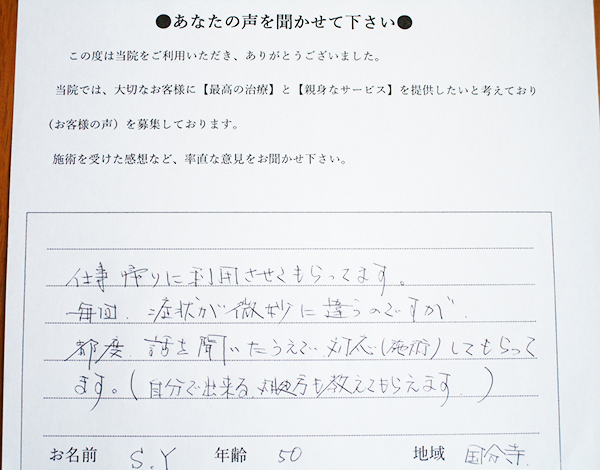 ●あなたの声を聞かせて下さい●
この度は当院をご利用いただき、ありがとうございました。
当院では、大切なお客様に【最高の治療】と【親身なサービス】を提供したいと考えており
（お客様の声）を募集しております。
施術を受けた感想など、率直な意見をお聞かせ下さい。
仕事帰りに利用させてもらってます。
毎回、症状が微妙に違うのですが
都度、話を聞いたうえで対応(施術)してもらって
ます。(自分で出来る対処方も教えてもらえます。)
お名前 S.Y 年齢 50 地域 国分寺